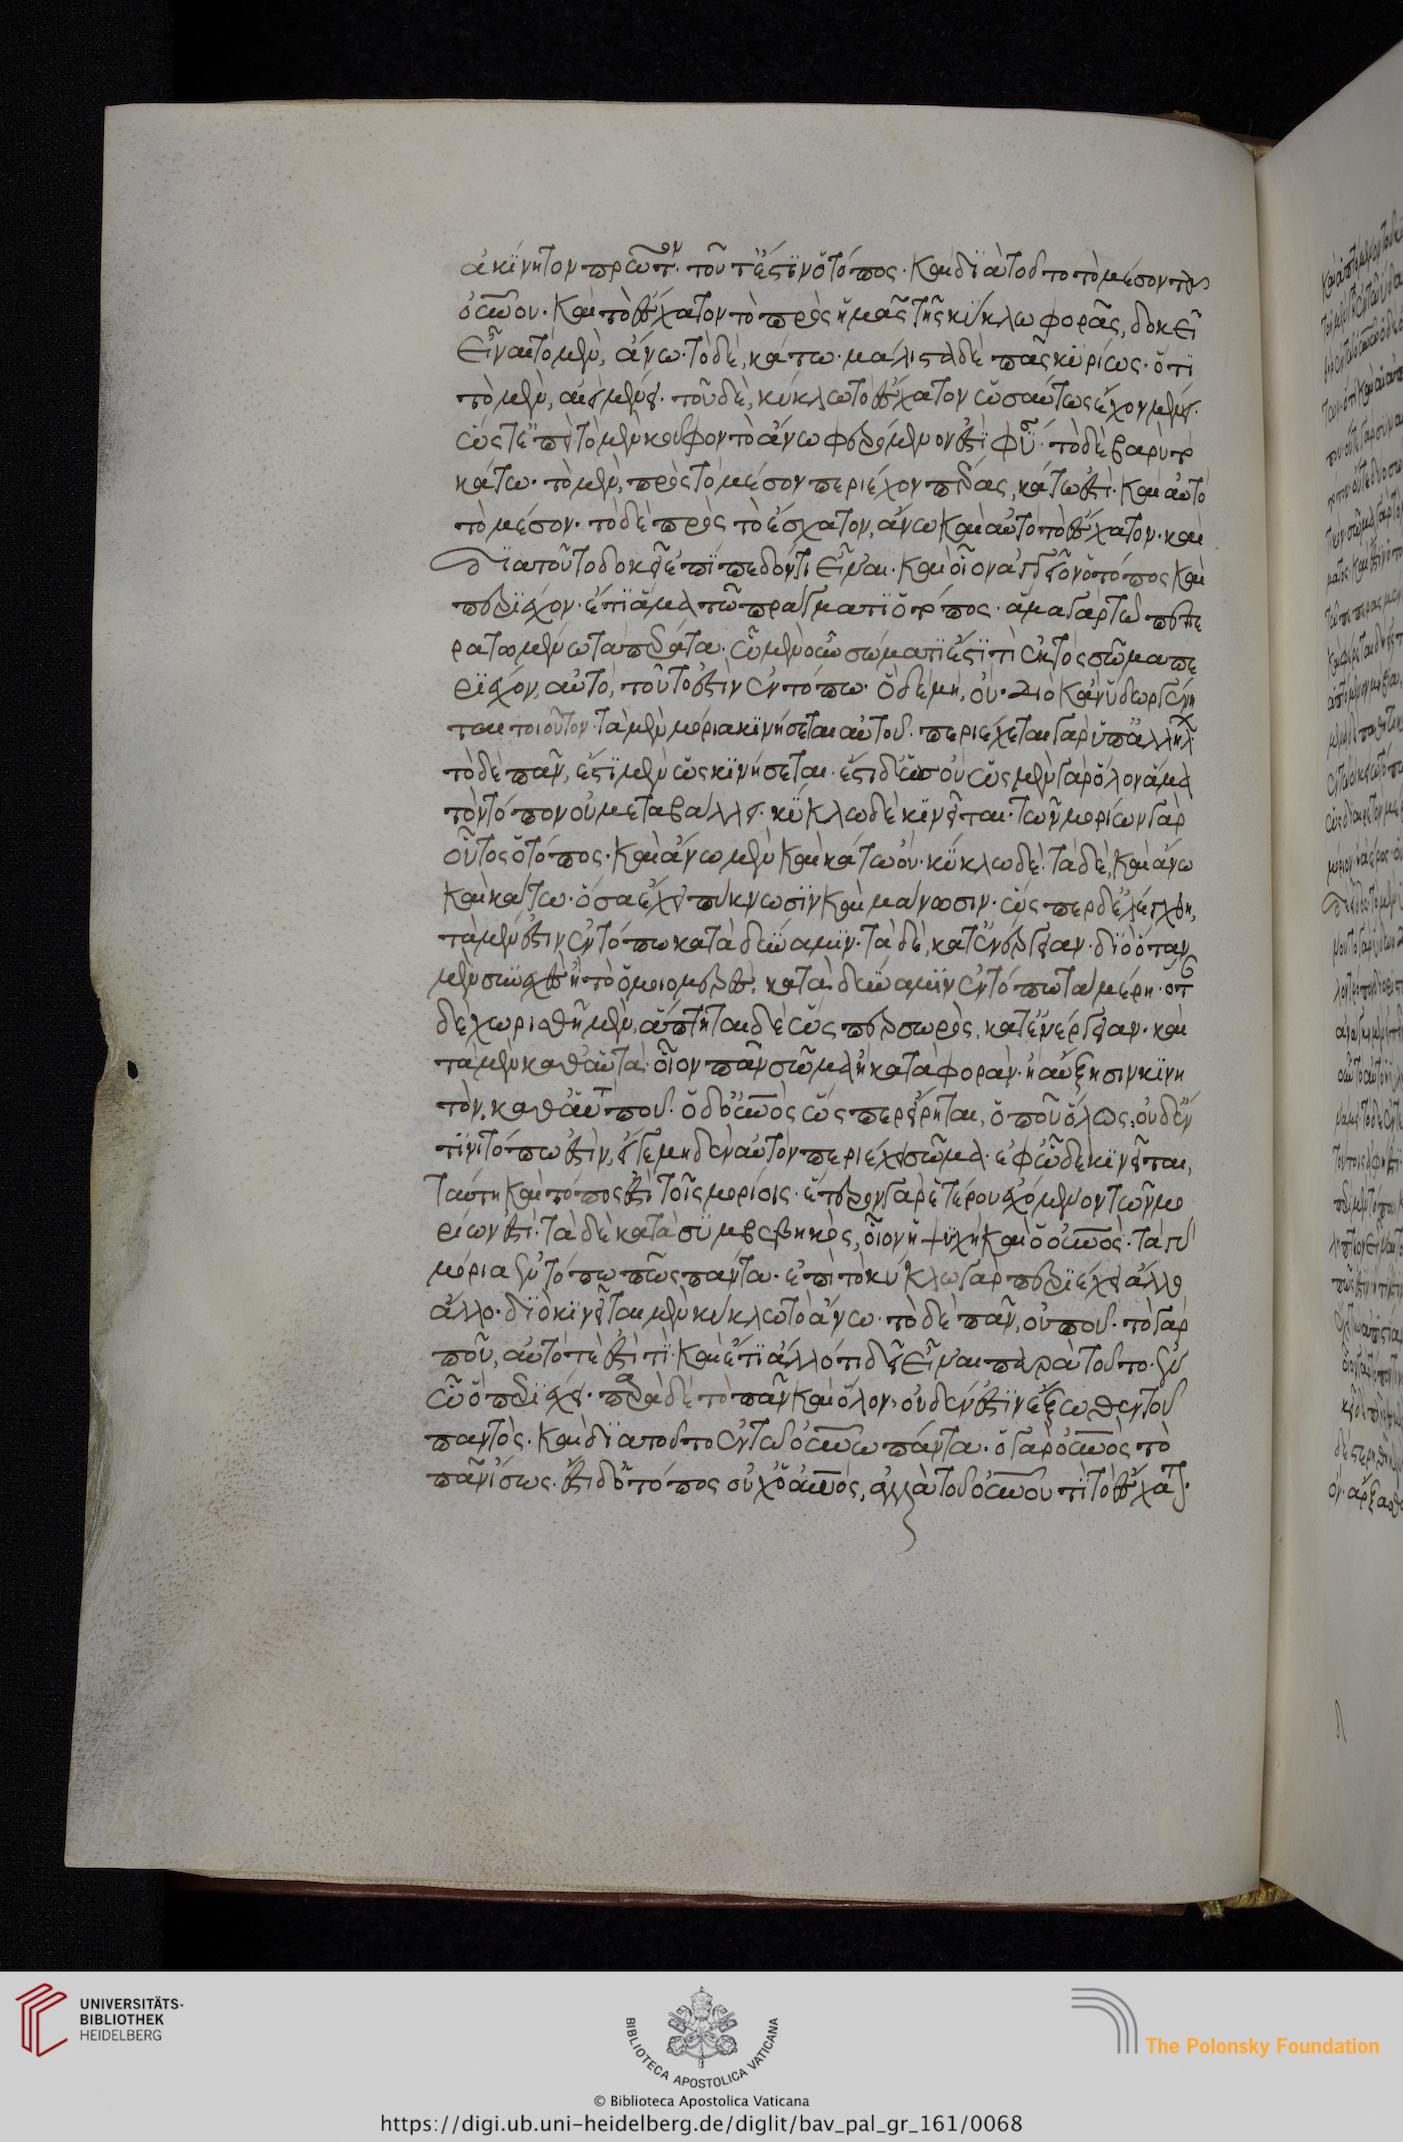 ἀκίνητον πρῶτον. τοῦτ' ἔστιν ὁ τόπος. καὶ διὰ τοῦτο τὸ μέσον τοῦ
οὐρανοῦ. καὶ τὸ ἔσχατον τὸ πρὸς ἡμᾶς τῆς κύκλω φορᾶς, δοκεῖ
εἶναι τὸ μὲν, ἄνω. τὸ δὲ, κάτω. μάλιστα δὲ πᾶς κυρίως. ὅτι
τὸ μὲν, αἰεὶ μένει. τοῦ δὲ, κύκλω τὸ ἔσχατον ὡσαύτως ἔχον μένει.
ὥστ' ἐπεὶ τὸ μὲν κοῦφον τὸ ἄνω φερόμενον ἐστὶ φύσει. τὸ δὲ βαρὺ τὸ
κάτω. τὸ μὲν, πρὸς τὸ μέσον περιέχον πέρας, κάτω ἐστί. καὶ αὐτὸ
τὸ μέσον. τὸ δὲ πρὸς τὸ ἔσχατον, ἄνω καὶ αὐτὸ τὸ ἔσχατον. καὶ
διὰ τοῦτο δοκεῖ ἐπίπεδόν τι εἶναι. καὶ οἷον ἀγγεῖον ὁ τόπος καὶ
περιέχον. ἔτι ἅμα τῶ πράγματι ὁ τόπος. ἅμα γὰρ τῶ πεπε
ρασμένω τὰ πέρατα. ὧ μὲν οὖν σώματι ἐστί τι ἐκτὸς σῶμα πε
ριέχον, αὐτὸ, τοῦτο ἐστὶν ἐν τόπω. ὧ δὲ μὴ, οὔ. διὸ κἂν ὕδωρ γένη
ται τοιοῦτον. τὰ μὲν μόρια κινήσεται αὐτοῦ. περιέχεται γὰρ ὑπ' ἀλλήλων
τὸ δὲ πᾶν, ἔστι μὲν ὡς κινήσεται. ἔστι δὲ ὡς οὔ ὡς μὲν γὰρ ὅλον ἅμα
τὸν τόπον οὐ μεταβάλλει. κύκλω δὲ κινεῖται. τῶν μορίων γὰρ
οὗτος ὁ τόπος. καὶ ἄνω μὲν καὶ κάτω οὔ. κύκλω δέ. τὰ δὲ, καὶ ἄνω
καὶ κάτω. ὅσα ἔχει πύκνωσιν καὶ μάνωσιν. ὥσπερ δ' ἐλέγχθη,
τὰ μέν ἐστιν ἐν τόπω κατὰ δύναμιν. τὰ δὲ, κατ' ἐνέργειαν. διὸ ὅταν
μὲν συνεχὲς ἦ τὸ ὁμοιομερὲς. κατὰ δύναμιν ἐν τόπω τὰ μέρη. ὅταν
δὲ χωρισθῆ μὲν, ἅπτηται δὲ ὥσπερ σωρὸς, κατ' ἐνέργειαν. καὶ
τὰ μὲν καθ' αὑτά. οἷον πᾶν σῶμα ἢ κατὰ φορὰν. ἢ αὔξησιν κινη
τὸν. καθ' αὑτό που. ὁ δ' οὐρανὸς ὥσπερ εἴρηται, οὔ που ὅλως. οὐδ' ἔν
τινι τόπω ἐστὶν, εἴ γε μηδὲν αὐτὸν περιέχει σῶμα. ἐφ' ὧ δὲ κινεῖται,
ταύτη καὶ τόπος ἐστὶ τοῖς μορίοις. ἕτερον γὰρ ἑτέρου ἐχόμενον τῶν μο
ρίων ἐστί. τὰ δὲ κατὰ συμβεβηκός, οἷον ἡ ψυχὴ καὶ ὁ οὐρανὸς. τὰ γὰρ
μόρια ἐν τόπω πως πάντα. ἐπὶ τὸ κύκλω γὰρ περιέχει ἄλλο
ἄλλο. διὸ κινεῖται μὲν κύκλω τὸ ἄνω. τὸ δὲ πᾶν, οὔ που. τὸ γὰρ
ποῦ, αὐτό τε ἐστί τι. καὶ ἔτι ἄλλό τι δεῖ εἶναι παρὰ τοῦτο. ἐν
ὧ ὃ περιέχει. παρὰ δὲ τὸ πᾶν καὶ ὅλον, οὐδέν ἐστιν ἔξωθεν τοῦ
παντὸς. καὶ διὰ τοῦτο ἐν τῶ οὐρανῶ πάντα. ὁ γὰρ οὐρανὸς τὸ
πᾶν ἴσως. ἔστι δ' ὁ τόπος οὐχ ὁ οὐρανός, ἀλλὰ τοῦ οὐρανοῦ τι τὸ ἔσχατον.
UNIVERSITÄTS-
BIBLIOTHEK
HEIDELBERG
BIBLIOTECA APOSTOLICA VATICANA
The Polonsky Foundation
© Biblioteca Apostolica Vaticana
https://digi.ub.uni-heidelberg.de/diglit/bav_pal_gr_161/0068